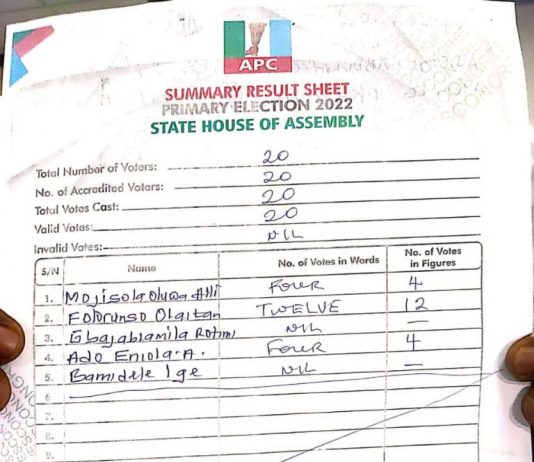 APC
SUMMARY RESULT SHEET
PRIMARY ELECTION 2022
STATE HOUSE OF ASSEMBLY
Total Number of Voters: 20
No. of Accredited Voters: 20
Total Votes Cast: 20
Valid Votes: 20
Invalid Votes: NIL
S/N Name No. of Votes in Words No. of Votes in Figures
1. Mojisola Oluwa Alli Four 4
2. Folorunso Olaitan TWELVE 12
3. Gbajabiamila Rotimi NIL —
4. Ado Eniola .A. Four 4
5. Bamidele Ige NIL —
6
7.
8.
9.